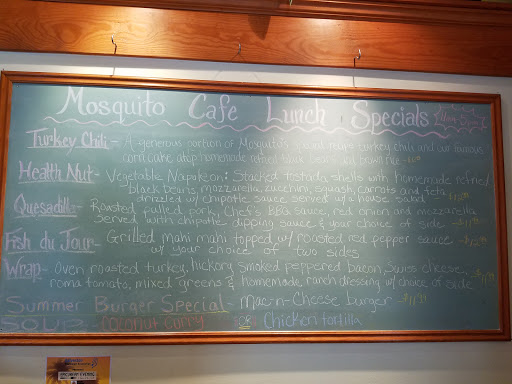 Mosquito Cafe Lunch Specials
Turkey Chili - A generous portion of Mosquito's special recipe turkey chili and our famous
corn cake atop homemade refried black beans and brown rice
Health Nut - Vegetable Napoleon: Stacked tostada shells with homemade refried
black beans, mozzarella, zucchini, squash, carrots and feta
drizzled w/ chipotle sauce served w/ a house salad
Quesadilla - Roasted pulled pork, Chef's BBQ sauce, red onion and mozzarella
served with chipotle dipping sauce & your choice of side
Fish du Jour - Grilled mahi mahi topped w/ roasted red pepper sauce
w/ your choice of two sides
Wrap - oven roasted turkey, hickory smoked peppered bacon, Swiss cheese,
roma tomato, mixed greens & homemade ranch dressing w/ choice of side
Summer Burger Special - Mac-n-Cheese burger
SOUP - coconut curry Chicken tortilla